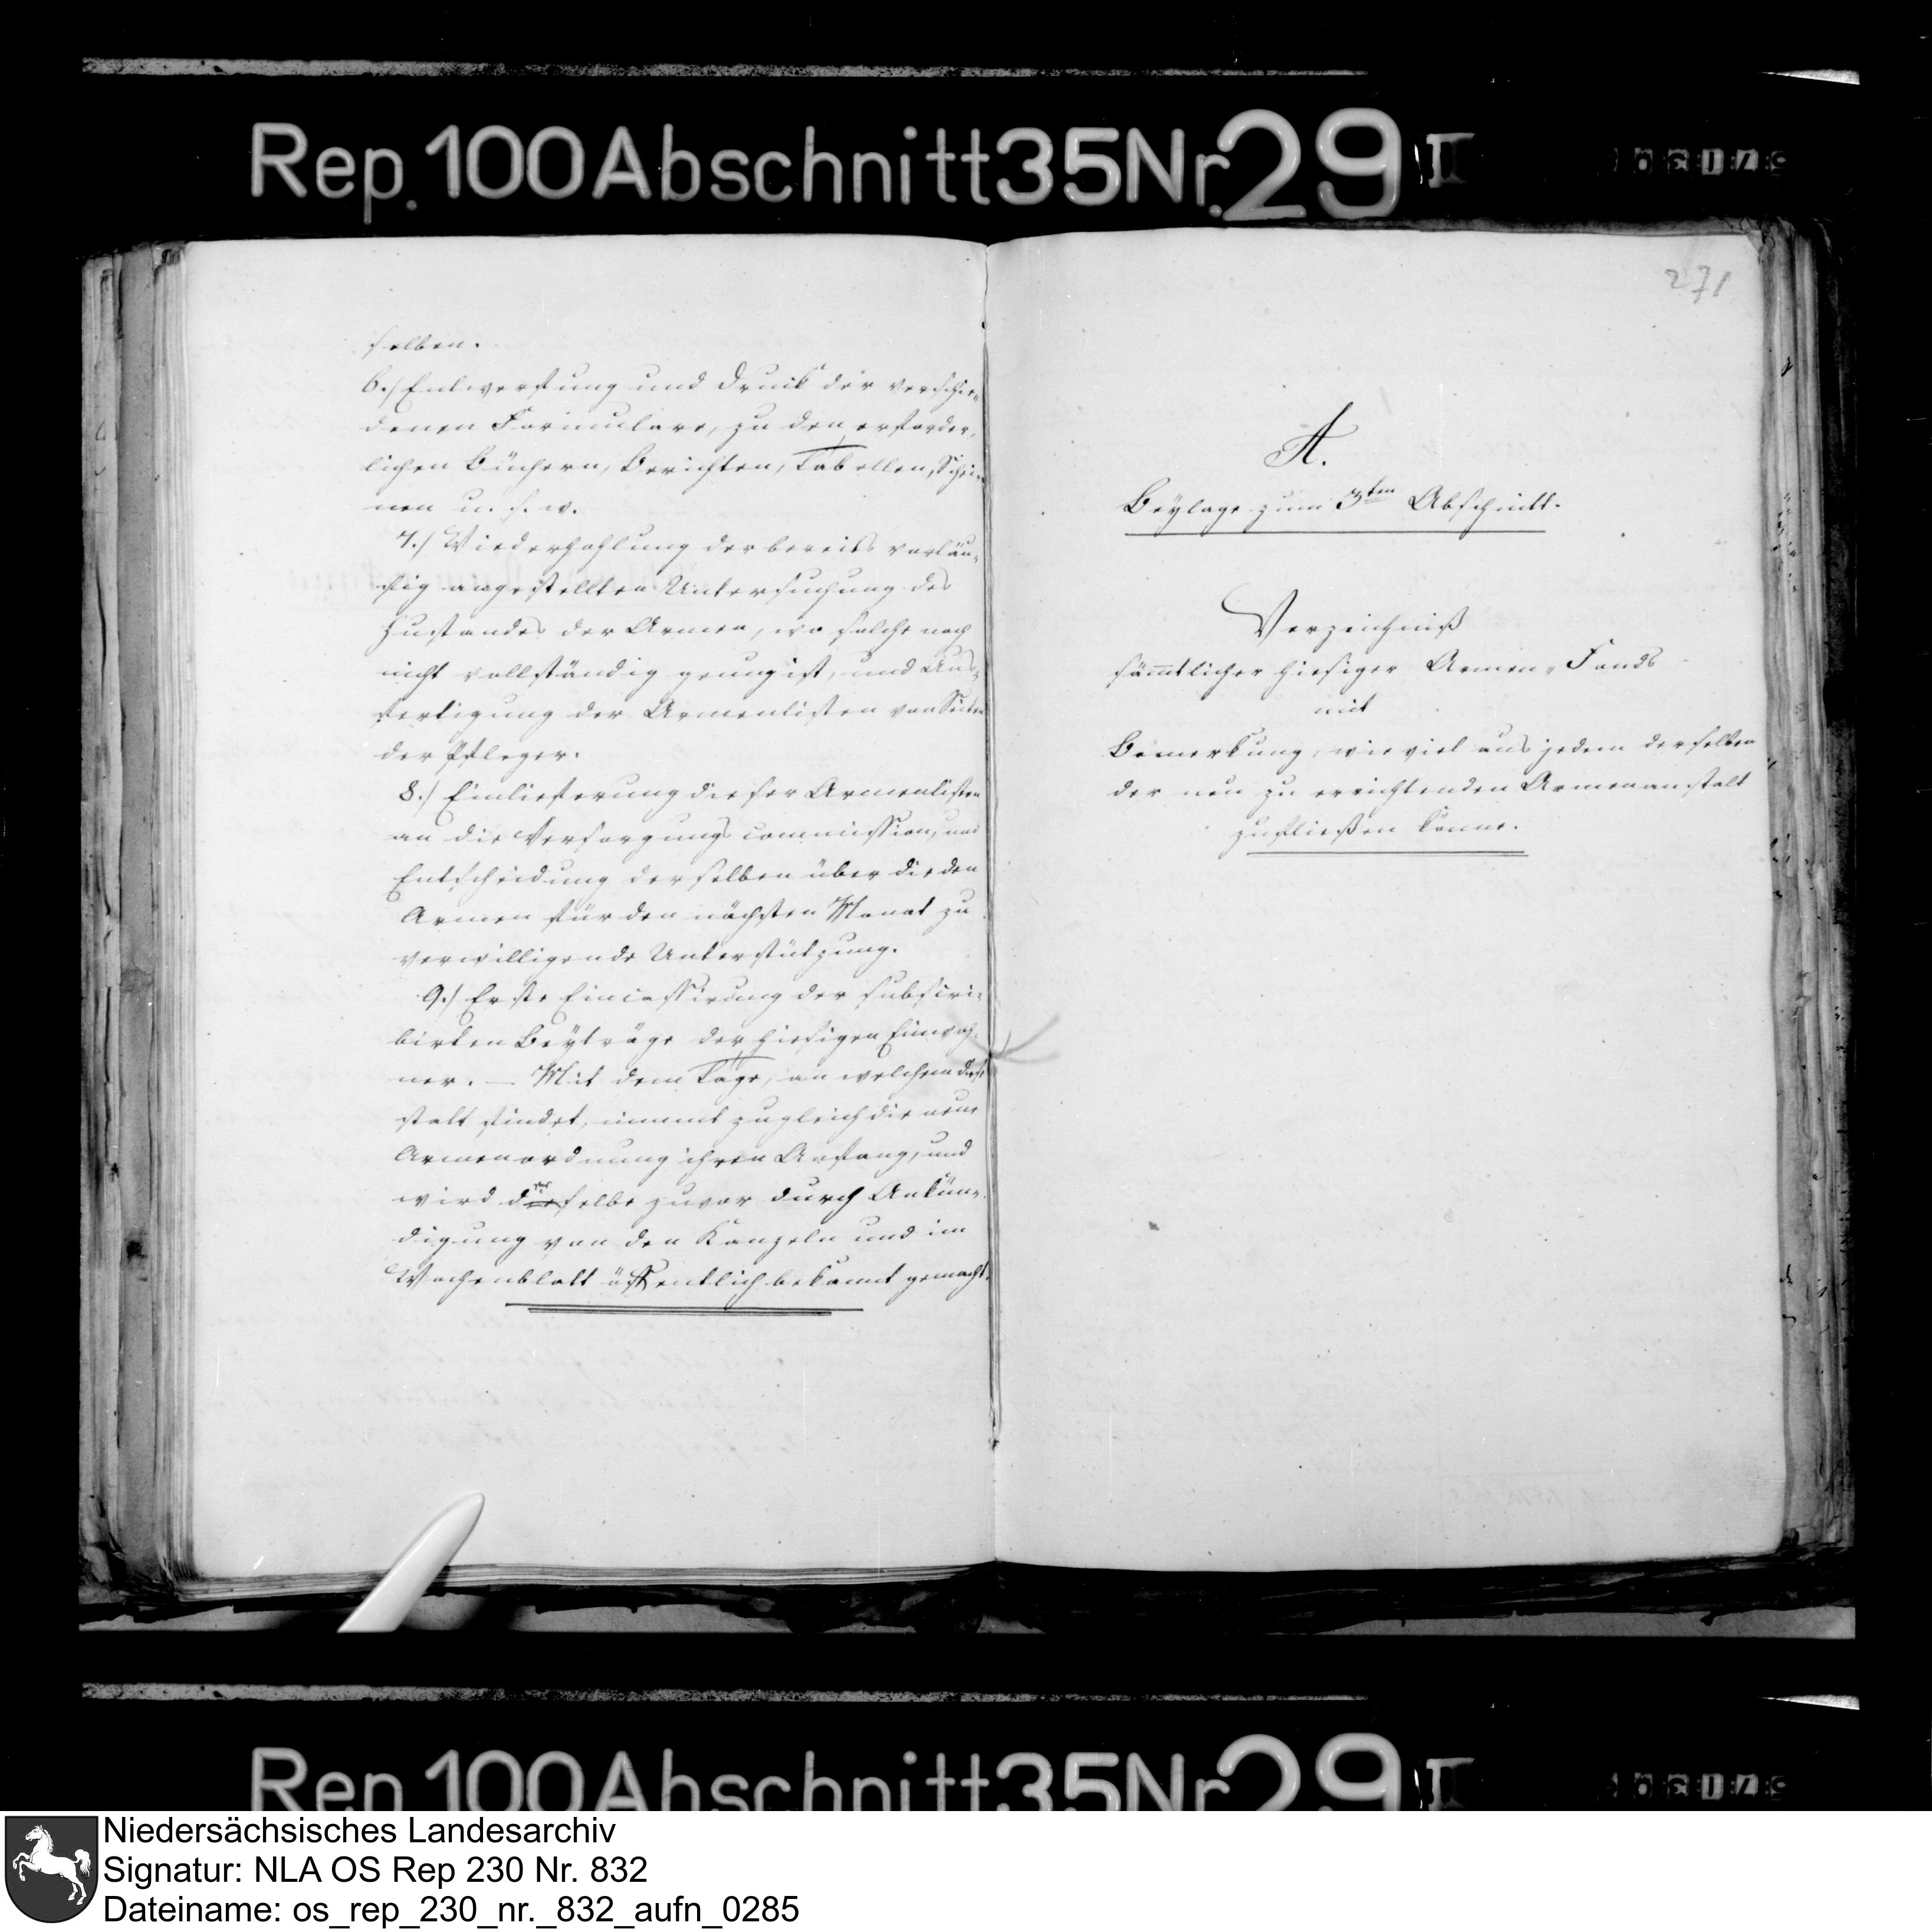 Rep. 100 Abschnitt 35 Nr. 29 I
selben.
6.) Entwerfung und Druck der verschie-
denen Formulare, zu den erforder-
lichen Büchern, Berichten, Tabellen, Schei-
nen u. s. w.
7.) Wiederhohlung der bereits vorläu-
fig angestellten Untersuchung des
Zustandes der Armen, wo solche noch
nicht vollständig genug ist, und Aus-
fertigung der Armenlisten von Seiten
der Pfleger.
8.) Einlieferung dieser Armenlisten
an die Versorgungscommission, und
Entscheidung derselben über die den
Armen für den nächsten Monat zu
verwilligende Unterstützung.
9.) Erste Einkassirung der subscri-
birten Beyträge der hiesigen Einwoh-
ner. — Mit dem Tage, an welchem diese
statt findet, nimmt zugleich die neue
Armenordnung ihren Anfang, und
wird dieselbe zuvor durch Ankün-
digung von den Kanzeln und im
Wochenblatt öffentlich bekannt gemacht.
271
A.
Beylage zum 3ten Abschnitt.
Verzeichniß
sämtlicher hiesiger Armen-Fonds
mit
Bemerkung, wie viel aus jedem derselben
der neu zu errichtenden Armenanstalt
zufließen könne.
Rep. 100 Abschnitt 35 Nr. 29 I
Niedersächsisches Landesarchiv
Signatur: NLA OS Rep 230 Nr. 832
Dateiname: os_rep_230_nr._832_aufn_0285